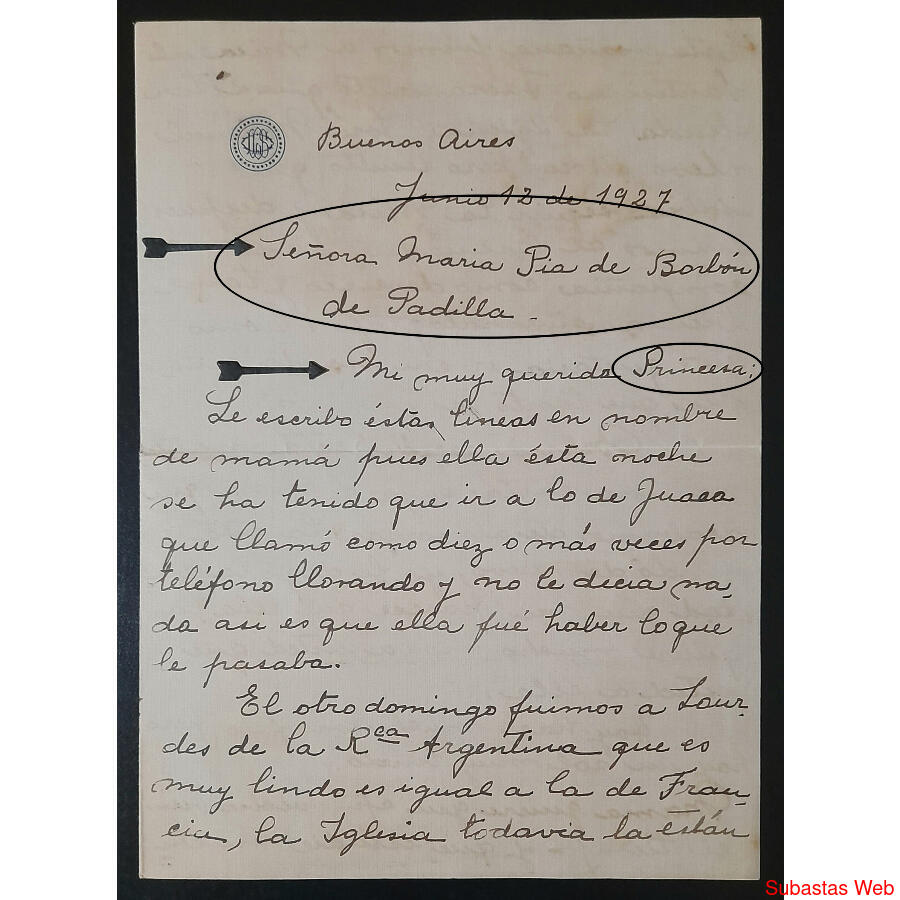 Buenos Aires
Junio 12 de 1927
Señora Maria Pia de Borbón
de Padilla -
Mi muy querida Princesa;
Le escribo éstas lineas en nombre
de mamá pues ella ésta noche
se ha tenido que ir a lo de
que llamó como diez o más veces por
teléfono llorando y no le decia na-
da asi es que ella fué haber lo que
le pasaba.
El otro domingo fuimos a Lour-
des de la Rca Argentina que es
muy lindo es igual a la de Fran-
cia, la Iglesia todavia la están
Subastas Web